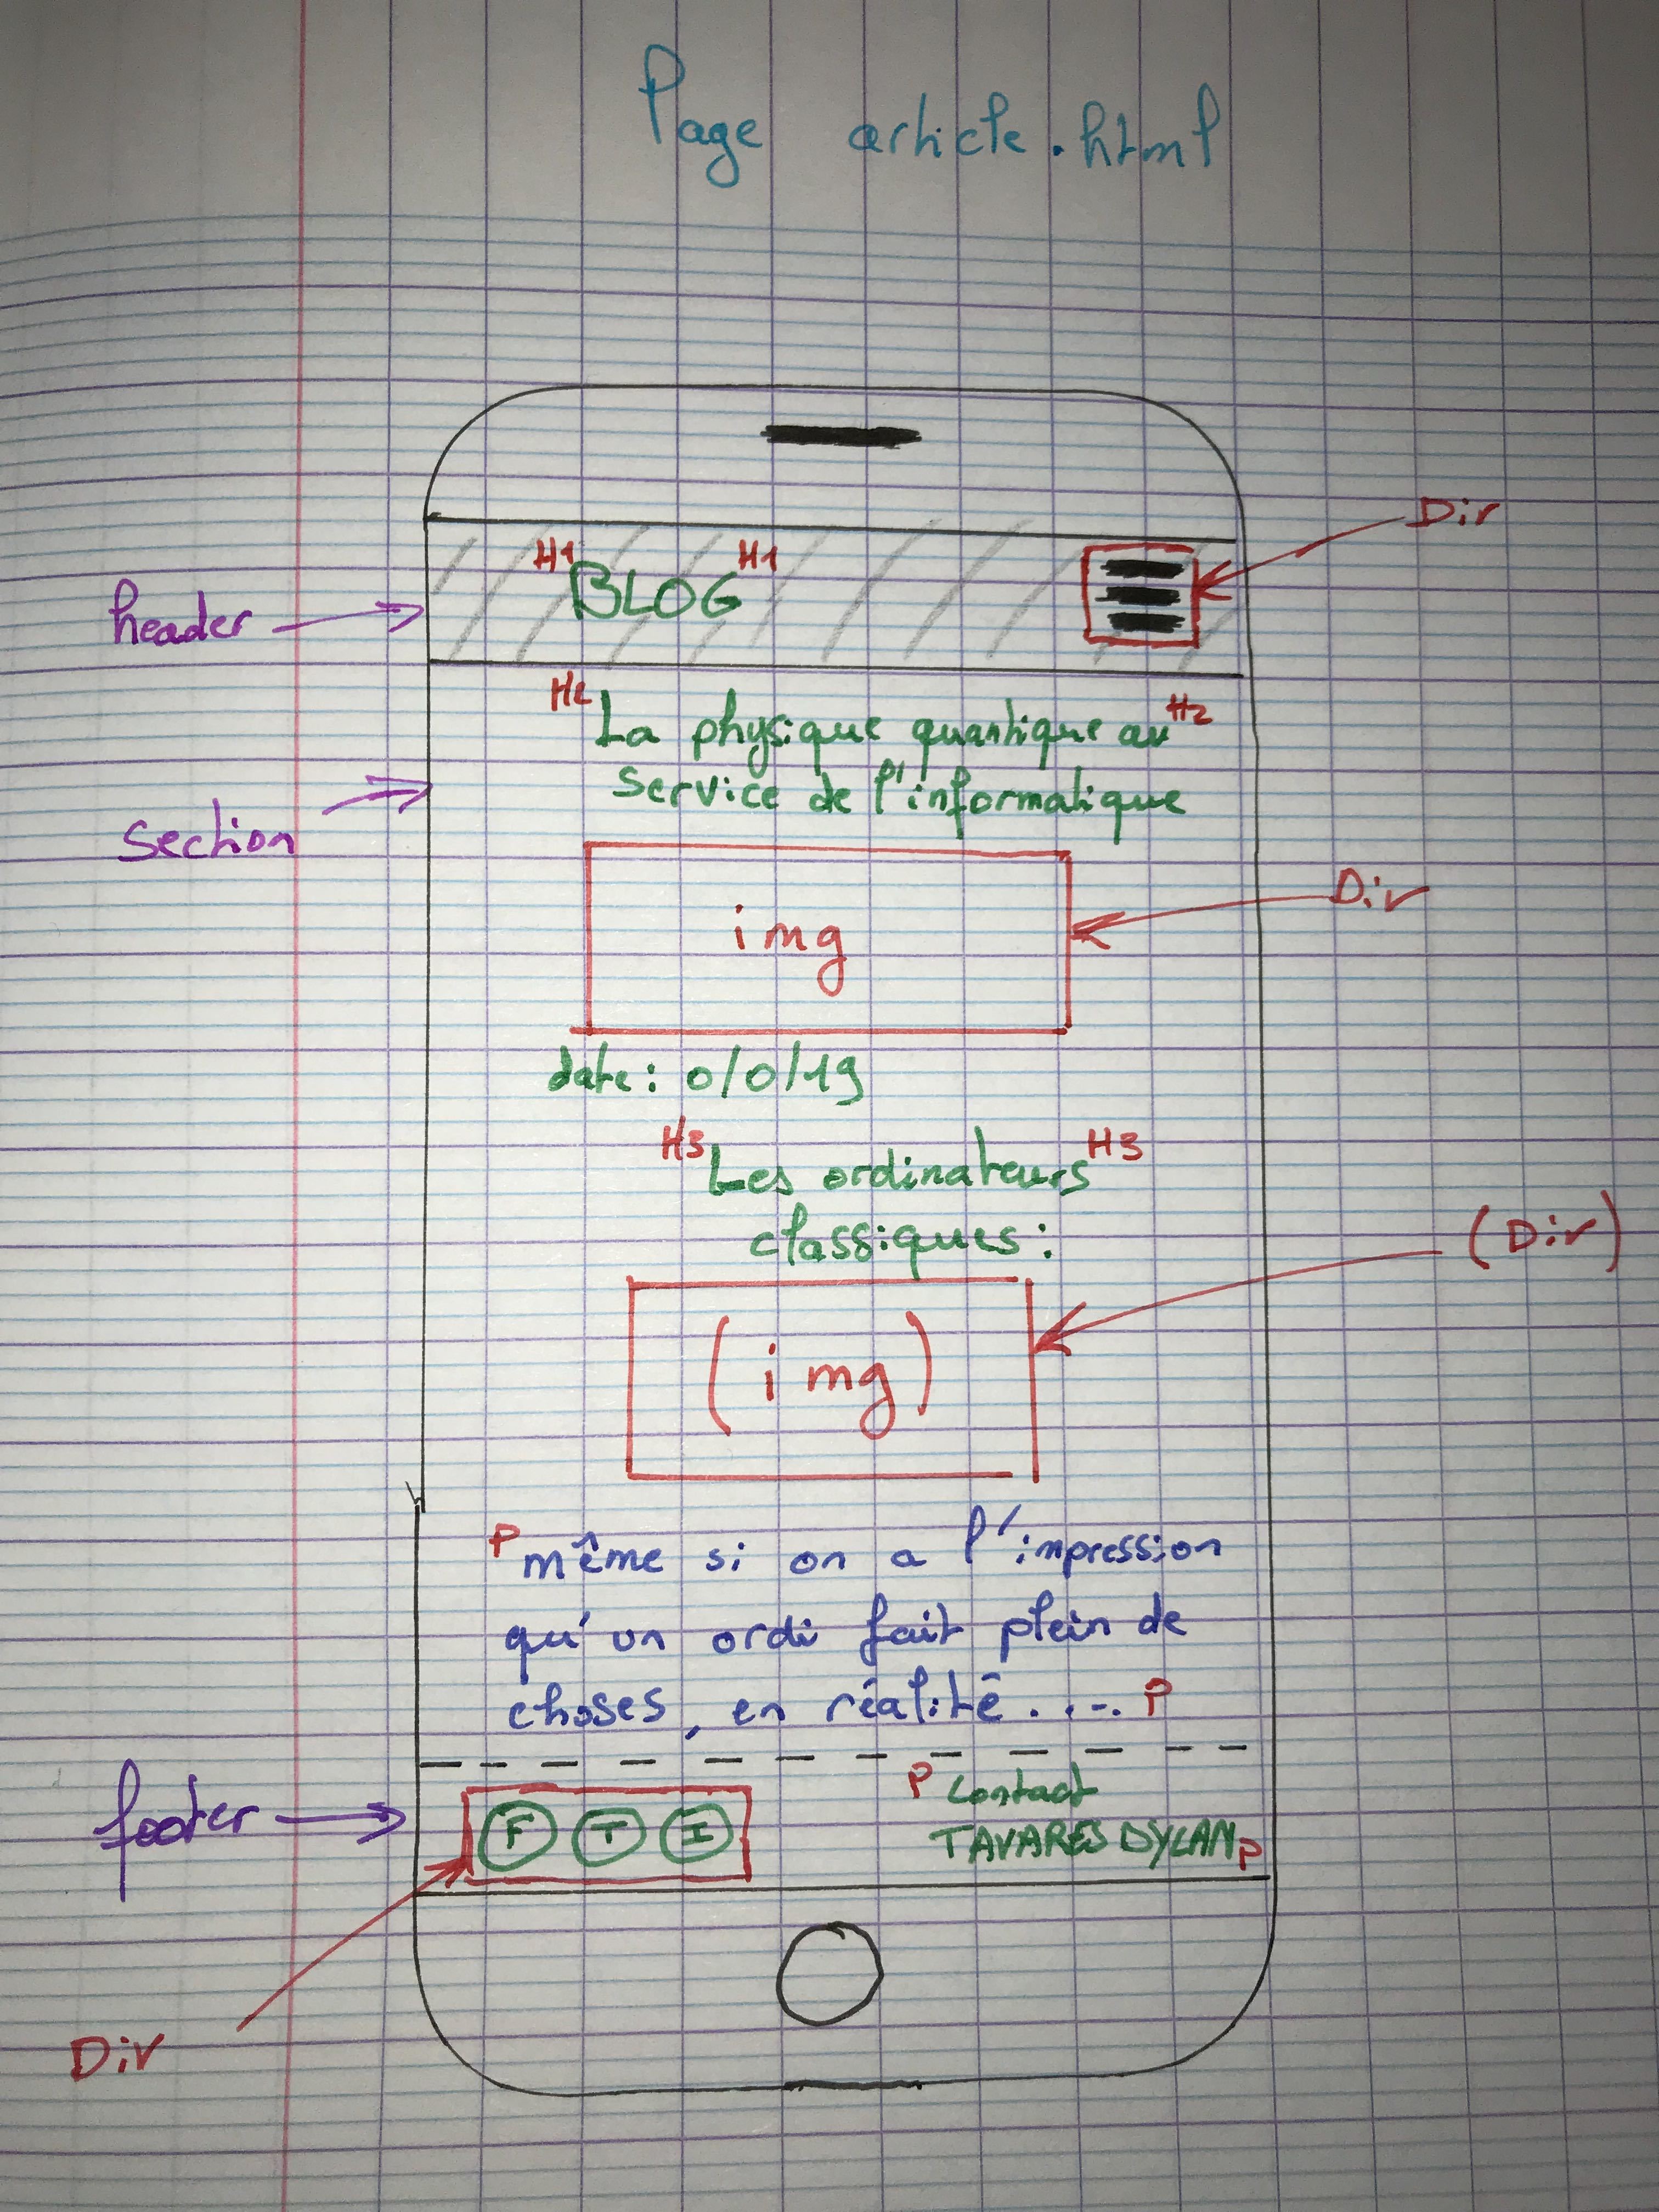 Page article.html
Div
H1 BLOG H1
header
H2 La physique quantique au H2
service de l'informatique
section
img
Div
date: 0/0/19
H3 Les ordinateurs H3
classiques:
(Div)
(img)
P même si on a l'impression
qu'un ordi fait plein de
choses, en réalité.... P
footer
F T I
P Contact
TAVARES DYLAN P
Div